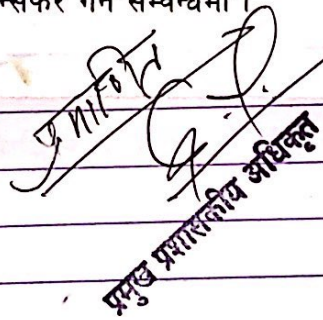 न्सफर गर्ने सम्बन्धमा ।
प्रमाणित
प्रमुख प्रशासकीय अधिकृत